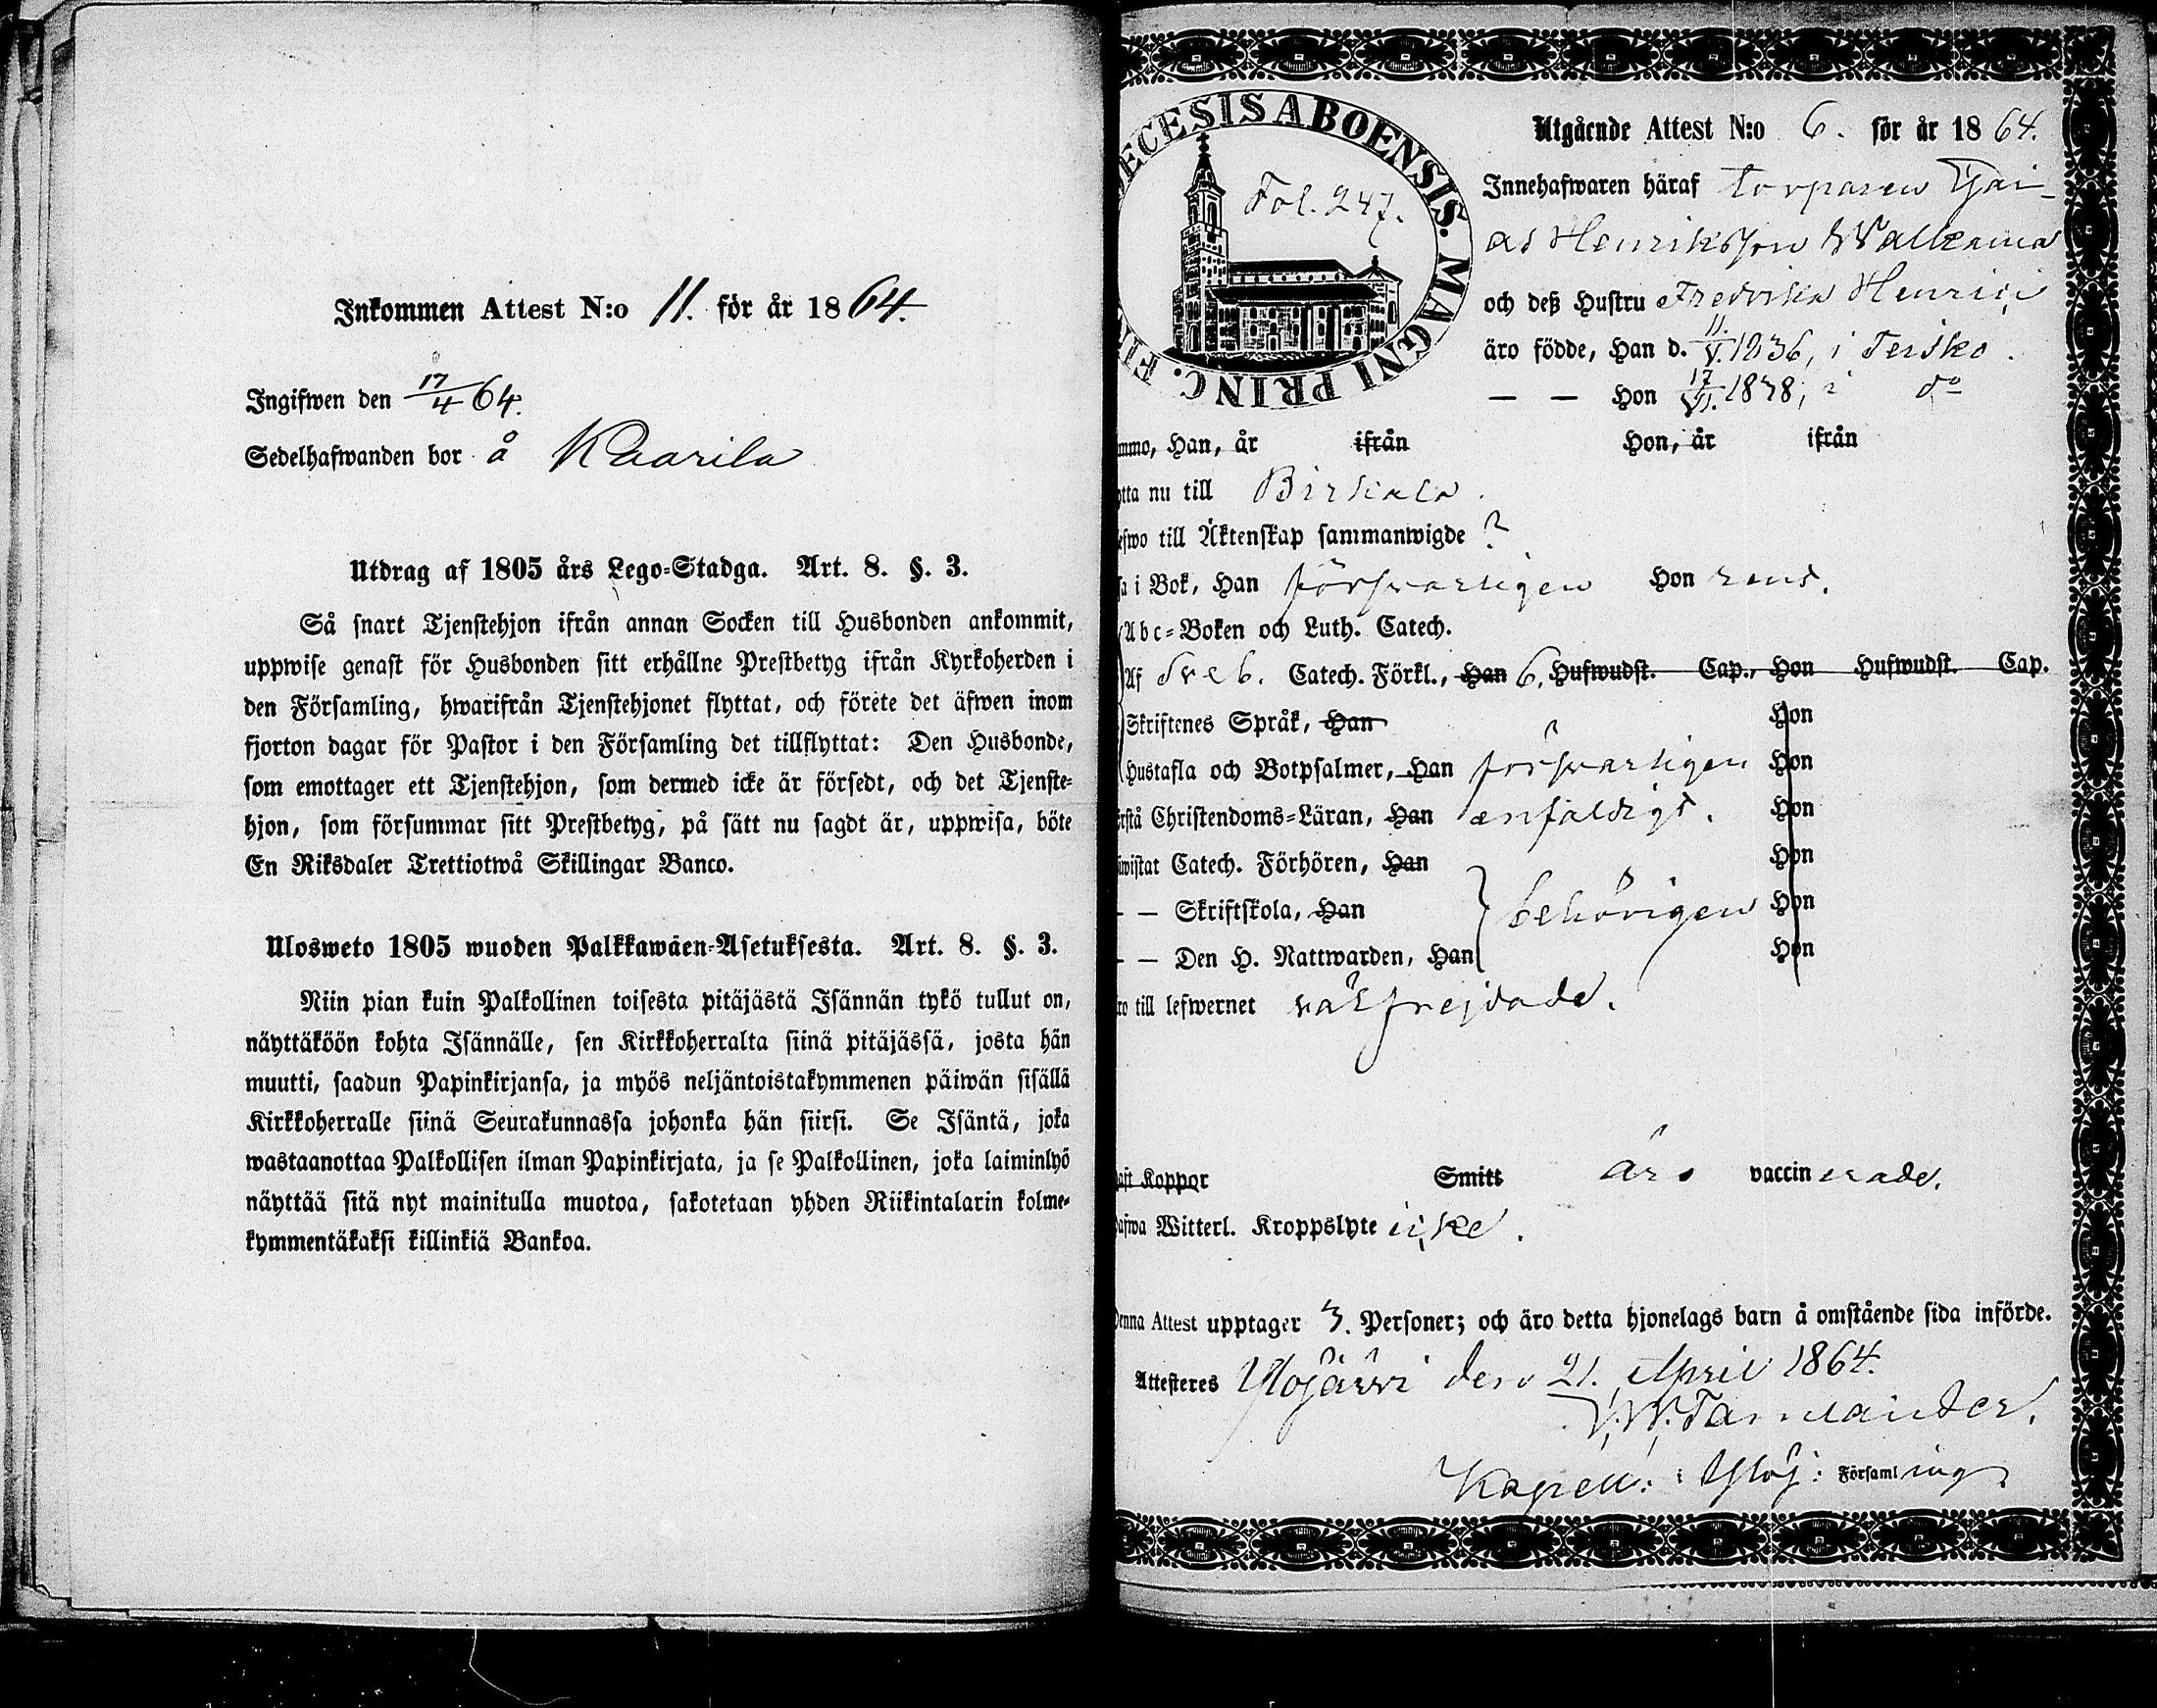 Inkommen Attest N:o 11. för år 1864.
Ingifwen den 17/4 64.
Sedelhafwanden bor å Kaarila
Utdrag af 1805 års Lego-Stadga. Art. 8. §. 3.
Så snart Tjenstehjon ifrån annan Socken till Husbonden ankommit,
uppwise genast för Husbonden sitt erhållne Prestbetyg ifrån Kyrkoherden i
den Församling, hwarifrån Tjenstehjonet flyttat, och förete det äfwen inom
fjorton dagar för Pastor i den Församling det tillflyttat: Den Husbonde,
som emottager ett Tjenstehjon, som dermed icke är försedt, och det Tjenste-
hjon, som försummar sitt Prestbetyg, på sätt nu sagdt är, uppwisa, böte
En Riksdaler Trettiotwå Skillingar Banco.
Ulosweto 1805 wuoden Palkkawäen-Asetuksesta. Art. 8. §. 3.
Niin pian kuin Palkollinen toisesta pitäjästä Isännän tykö tullut on,
näyttäköön kohta Isännälle, sen Kirkkoherralta siinä pitäjässä, josta hän
muutti, saadun Papinkirjansa, ja myös neljäntoistakymmenen päiwän sisällä
Kirkkoherralle siinä Seurakunnassa johonka hän siirsi. Se Isäntä, joka
wastaanottaa Palkollisen ilman Papinkirjata, ja se Palkollinen, joka laiminlyö
näyttää sitä nyt mainitulla muotoa, sakotetaan yhden Riikintalarin kolme-
kymmentäkaksi killinkiä Bankoa.
ECESIS ABOENSIS. MAGNI PRINC. FI
Fol. 247.
Utgående Attest N:o 6. för år 1864.
Innehafwaren häraf torparen
Henriksson
och deß Hustru Fredrika Henrici
äro födde, Han d. 11/V. 1836, i Teisko.
— — Hon 17/VI. 1838, i do
mmo, Han, år ifrån Hon, år ifrån
tta nu till Birkala.
efwo till Äktenskap sammanwigde ?
a i Bok, Han försvarligen Hon rent.
Abc-Boken och Luth. Catech.
Af Sveb. Catech. Förkl., Han 6. Hufwudst. Cap., Hon Hufwudst. Cap.
Skriftenes Språk, Han Hon
Hustafla och Botpsalmer, Han försvarligen Hon
rstå Christendoms-Läran, Han enfaldigt. Hon
iwistat Catech. Förhören, Han Hon
— — Skriftskola, Han behörigen Hon
— — Den H. Nattwarden, Han Hon
ro till lefwernet välfrejdade.
aft Koppor Smitt äro vaccinerade.
afwa Witterl. Kroppslyte icke.
Denna Attest upptager 3. Personer; och äro detta hjonelags barn å omstående sida införde.
Attesteres Ylöjärvi den 21. April 1864.
Kapell: i Ylöj: Församling